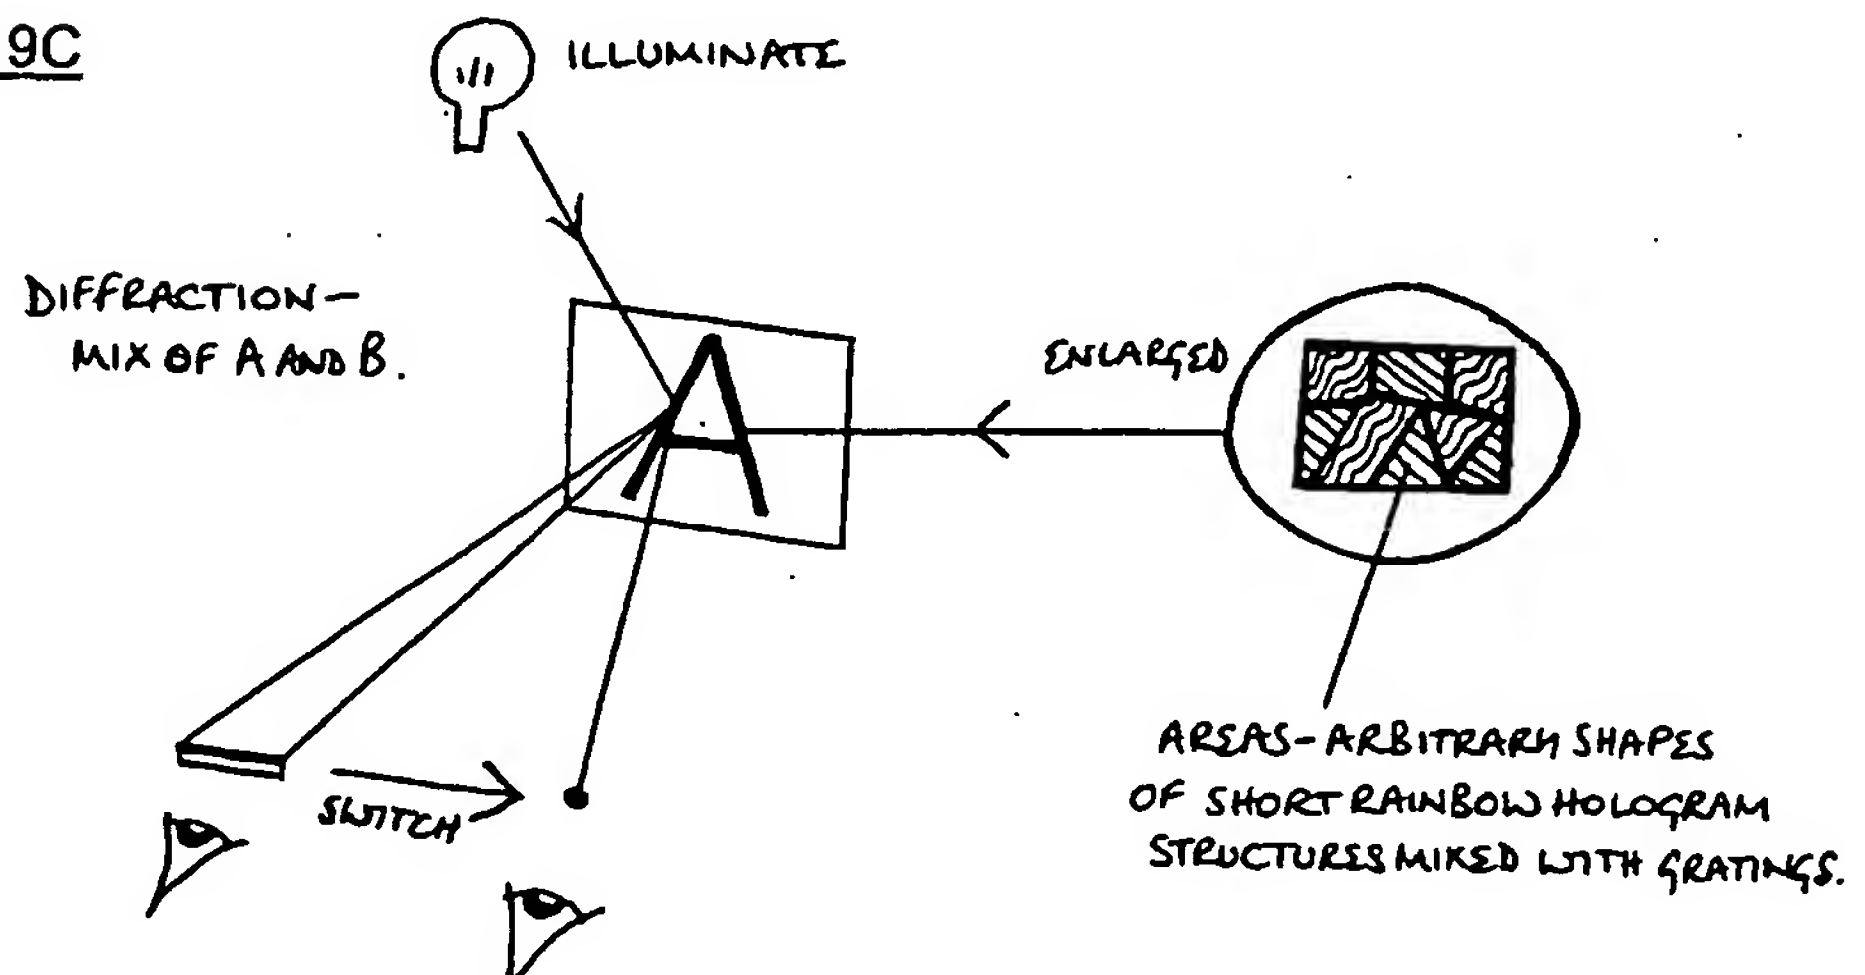 9C
ILLUMINATE
DIFFRACTION-
MIX OF A AND B.
A
ENLARGED
SWITCH
AREAS-ARBITRARY SHAPES
OF SHORT RAINBOW HOLOGRAM
STRUCTURES MIXED WITH GRATINGS.